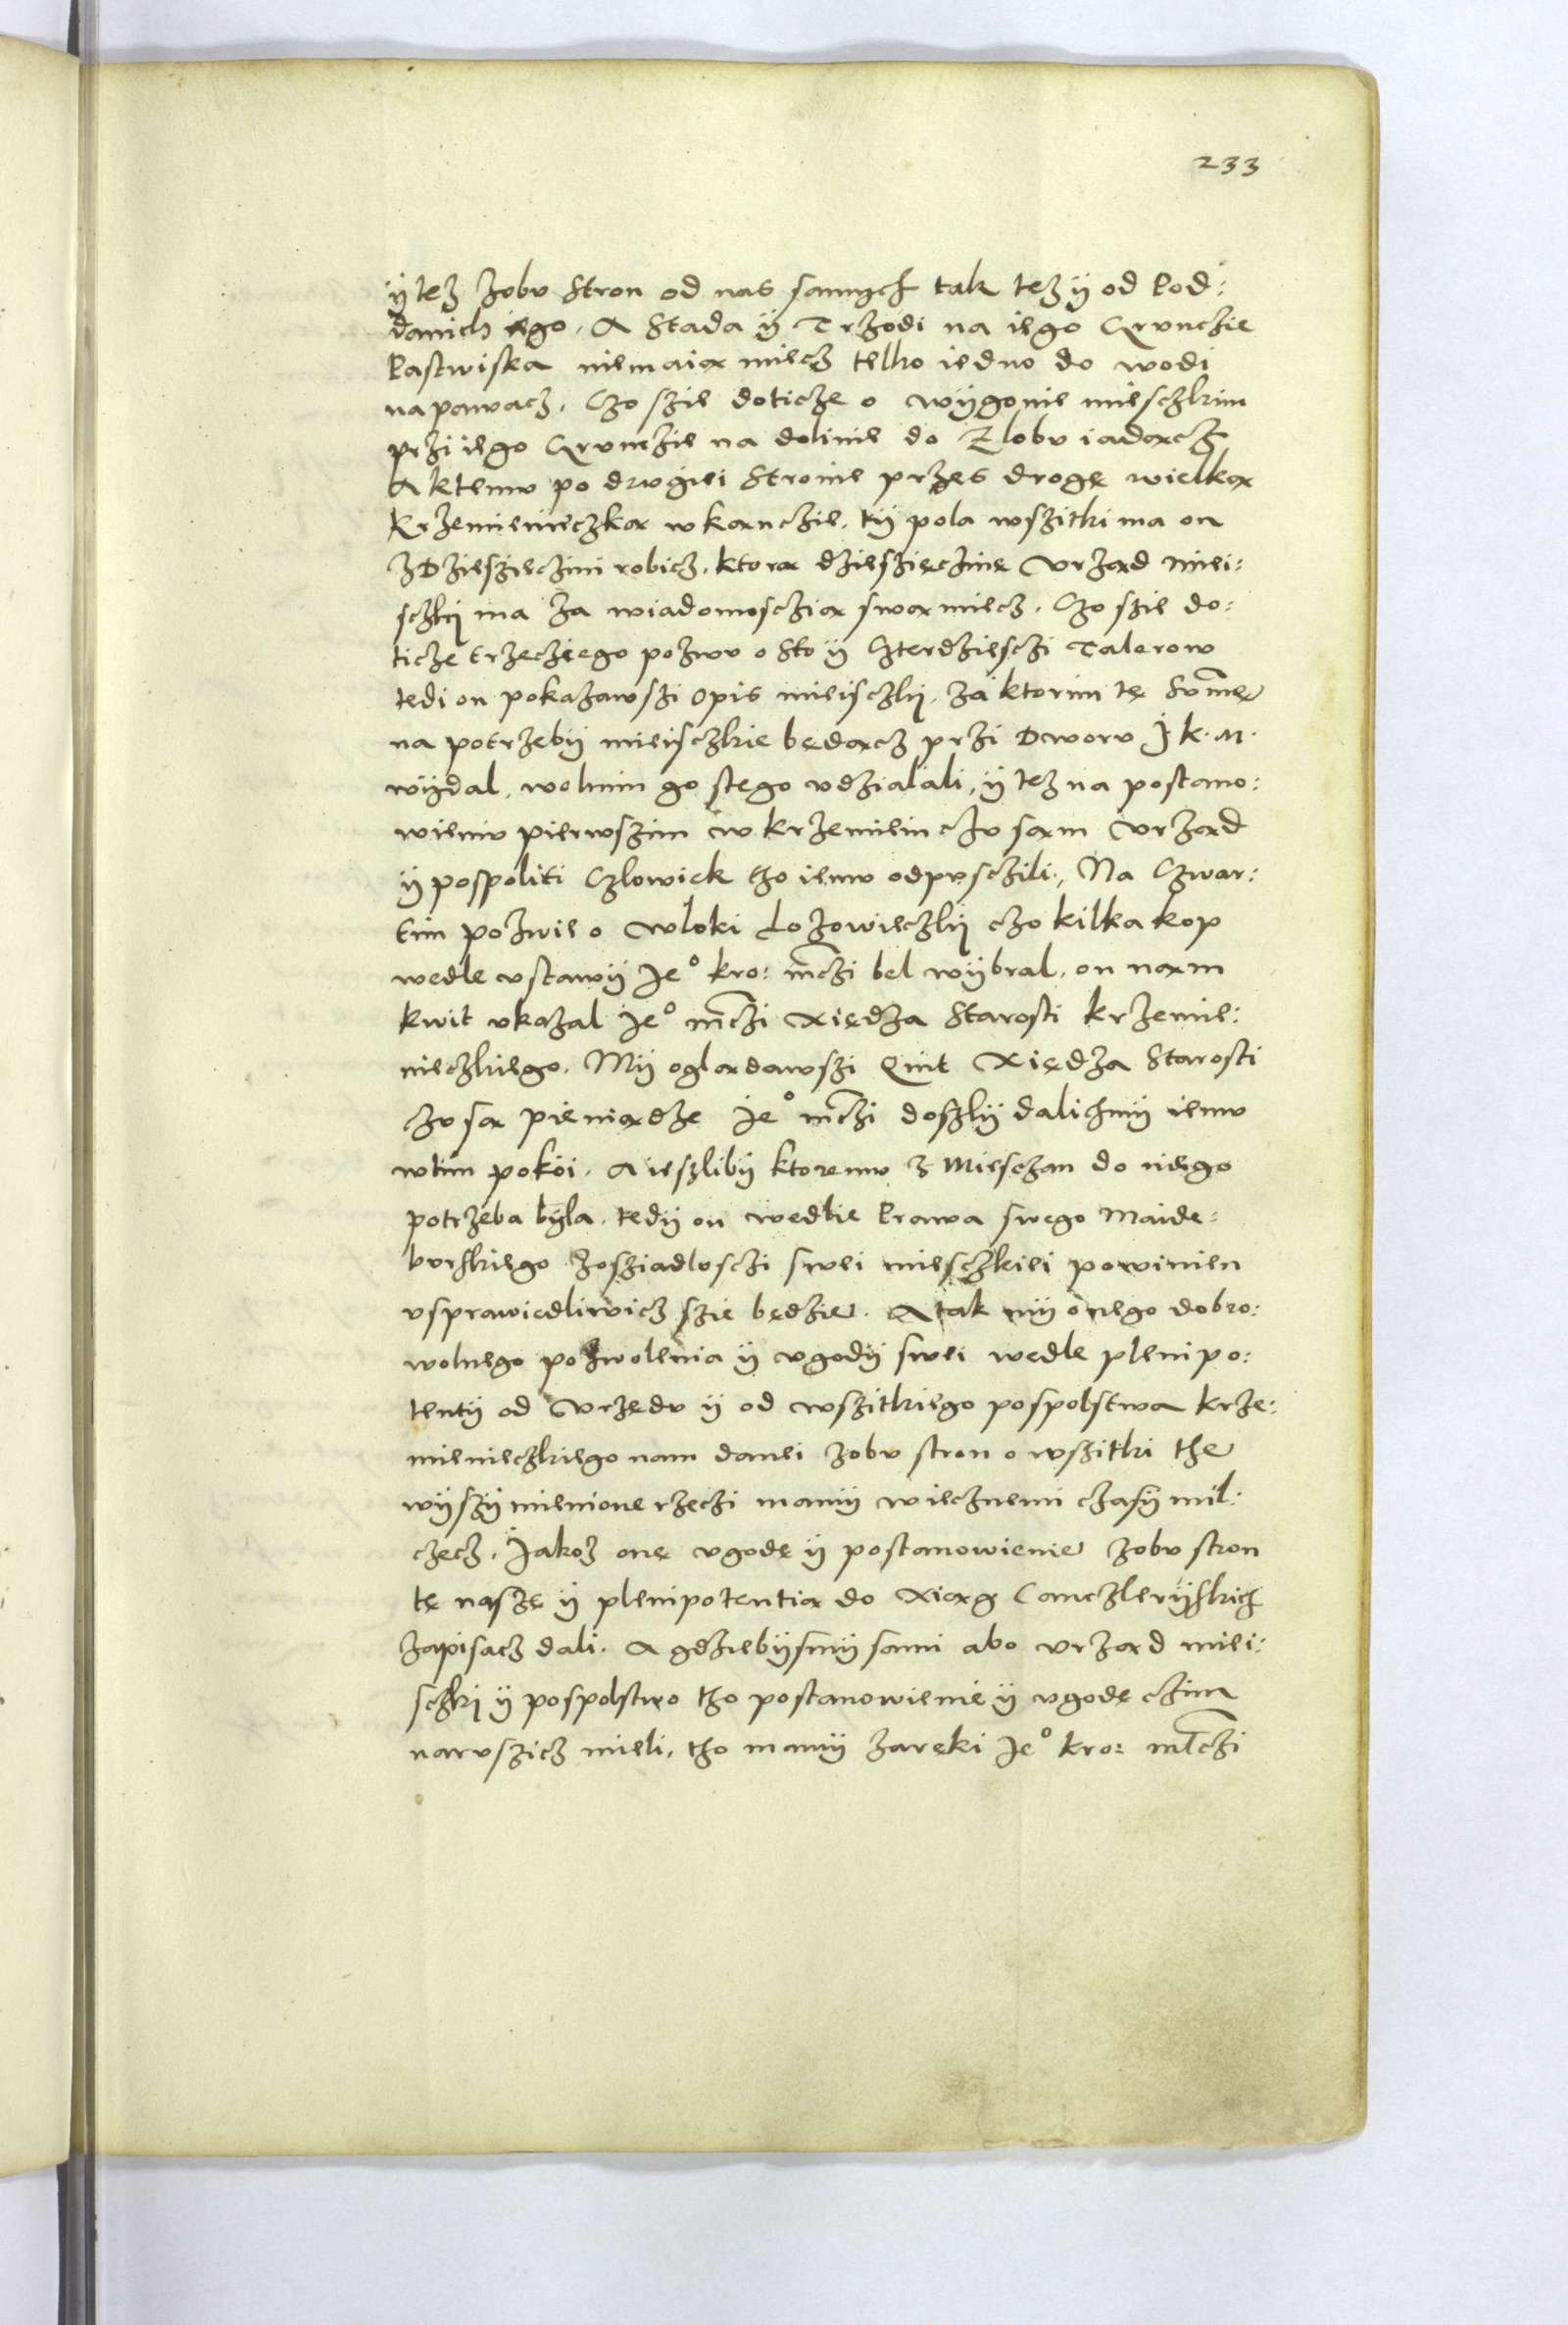 233
ÿ tez zobu Stron od nas samych tak tez ÿ od Pod:
danich iego. A Stada ÿ Trzodi na iego Grunczie
Pastwiska niemaią miecz telko iedno do wodi
napawacz. Czo szie doticze o wÿgonie miesczkim
przi iego Grunczie na dolinie do Zlobu iadącz
A ktemu po drugiei Stronie przes drogę wielką
Krzemienieczką w kąnczie. tÿ pola wszitki ma on
z Dziesziecżini robicz. ktorą dzieszięczinę Vrząd miei:
sczkÿ ma za wiadomosczią swą miecz. Czo szie do:
ticze trzecziego pozwu o Sto ÿ Czterdziesczi Talerow
tedi on pokazawszi opis mieisczkÿ. za ktorim tę Sum̃ę
na potrzebÿ mieisczkie będącz przi Dworu J. K. M.
wÿdal, wolnim go stego udzialali, ÿ tez na postano:
wieniu pierwszim w krzemieinczu sąm Vrząd
ÿ pospoliti Czlowiek tho iemu odpusczili., Na Czwar:
tim pozwie o Wloki Lozowieczkÿ czo kilka kop
wedle ustawÿ Je° kro: mczi bel wÿbral, on nąm
kwit ukazal Je° mczi Xiędza Starosti krzemie:
nieczkiego. Mÿ oglądawszi Quit Xiędza Starosti
czu są pieniądze Je° mczi doszlÿ dalichmÿ iemu
wtim pokoi. A ieszlibÿ ktoremu z Miesczan do niego
potrzeba bÿla, tedÿ on wedlie Prawa swego Maide:
burskiego zosziadlosczi swei miesczkiei powinien
usprawiedliwicz szie będzie. A tak mÿ onego dobro:
wolnego pozwolenia ÿ ugodÿ swei wedle plenipo:
tentÿ od Vrzędu ÿ od wszitkiego pospolstwa krze:
mienieczkiego nam danei zobu stron o wszitki the
wÿszÿ mienione rzeczi mamÿ wiecznemi czasÿ mil:
czecz. Jakoz onę ugodę ÿ postanowienie zobu stron
tę naszę ÿ plenipotentią do Xiąg Canczlerÿskich
zapisacz dali. A gdziebÿsmÿ sami abo urząd miei:
sczkÿ ÿ pospolstwo tho postanowienie ÿ ugodę czim
naruszicz mieli, tho mamÿ zaręki Je° kro: mczi